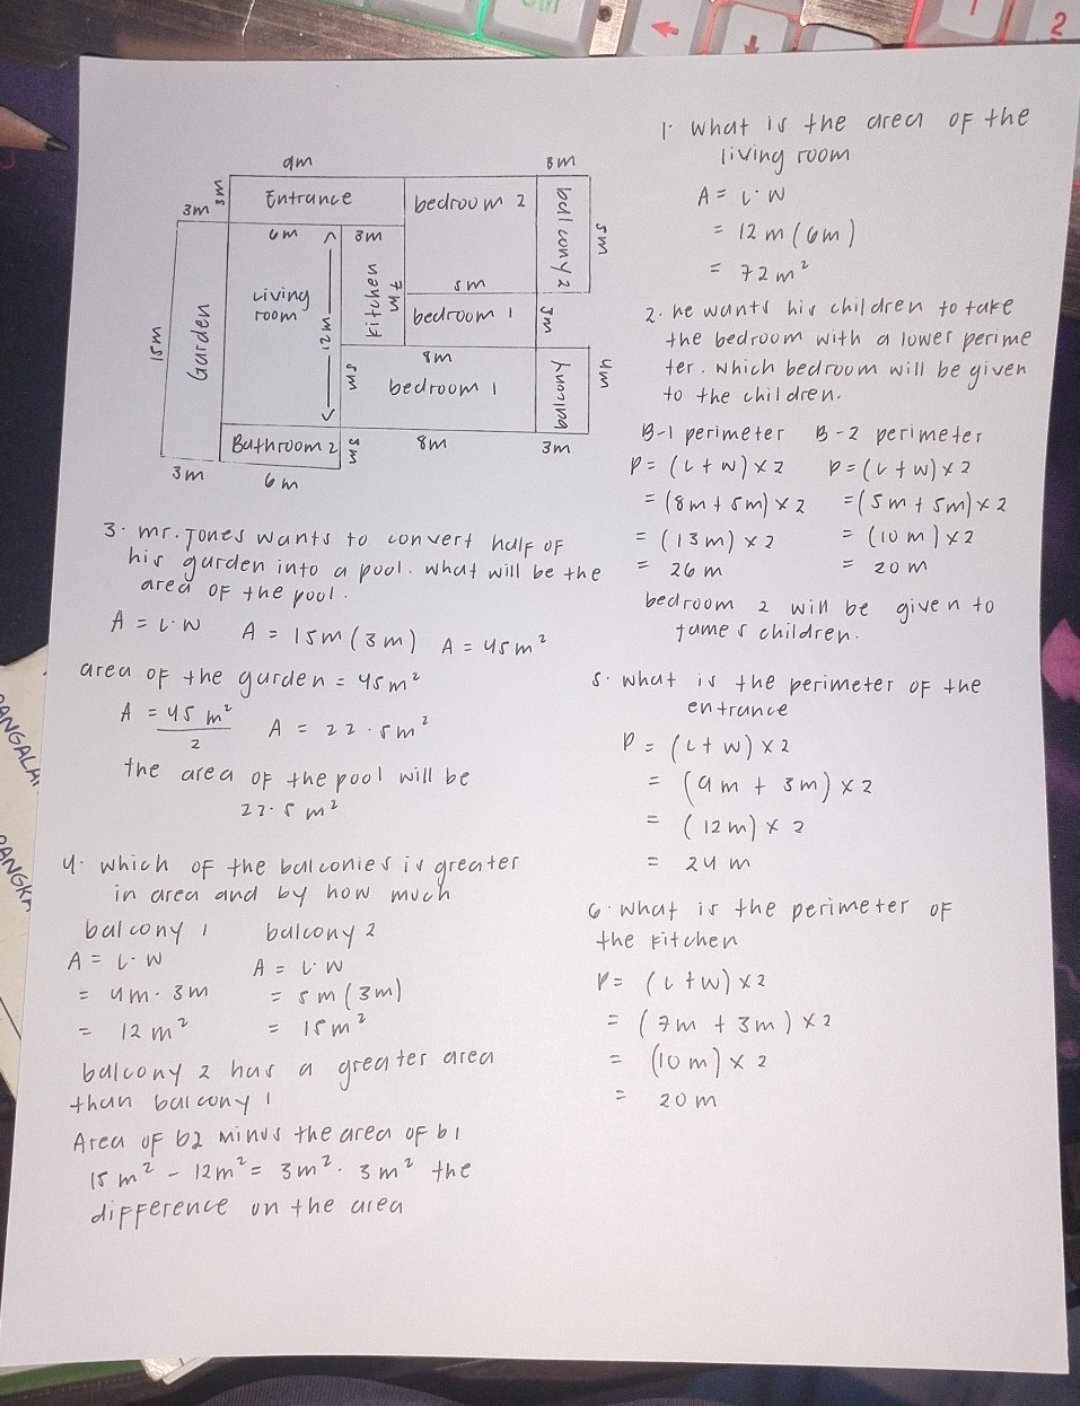 9m
3m
3m
3m
Entrance
bedroom 2
balcony 2
5m
6m
3m
Living
room
12m
kitchen
7m
5m
bedroom 1
3m
Garden
15m
8m
5m
bedroom 1
balcony
4m
Bathroom 2
3m
8m
3m
3m
6m
1. What is the area of the
living room
A = L · W
= 12 m (6m)
= 72 m²
2. he wants his children to take
the bedroom with a lower perime
ter. which bedroom will be given
to the children.
B-1 perimeter
P = (L + W) × 2
= (8m + 5m) × 2
= (13m) × 2
= 26 m
B-2 perimeter
P = (L + W) × 2
= (5m + 5m) × 2
= (10m) × 2
= 20 m
bedroom 2 will be given to
James children.
3. mr. Jones wants to convert half of
his garden into a pool. what will be the
area of the pool.
A = L · W A = 15m (3m) A = 45m²
area of the garden = 45m²
A = 45 m²
2
A = 22.5m²
the area of the pool will be
22.5 m²
4. which of the balconies is greater
in area and by how much
balcony 1
A = L · W
= 4m · 3m
= 12 m²
balcony 2
A = L · W
= 5m (3m)
= 15m²
balcony 2 has a greater area
than balcony 1
Area of b2 minus the area of b1
15 m² - 12m² = 3m². 3m² the
difference on the area
5. what is the perimeter of the
entrance
P = (L + W) × 2
= (9m + 3m) × 2
= (12m) × 2
= 24 m
6. what is the perimeter of
the kitchen
P = (L + W) × 2
= (7m + 3m) × 2
= (10m) × 2
= 20 m
2